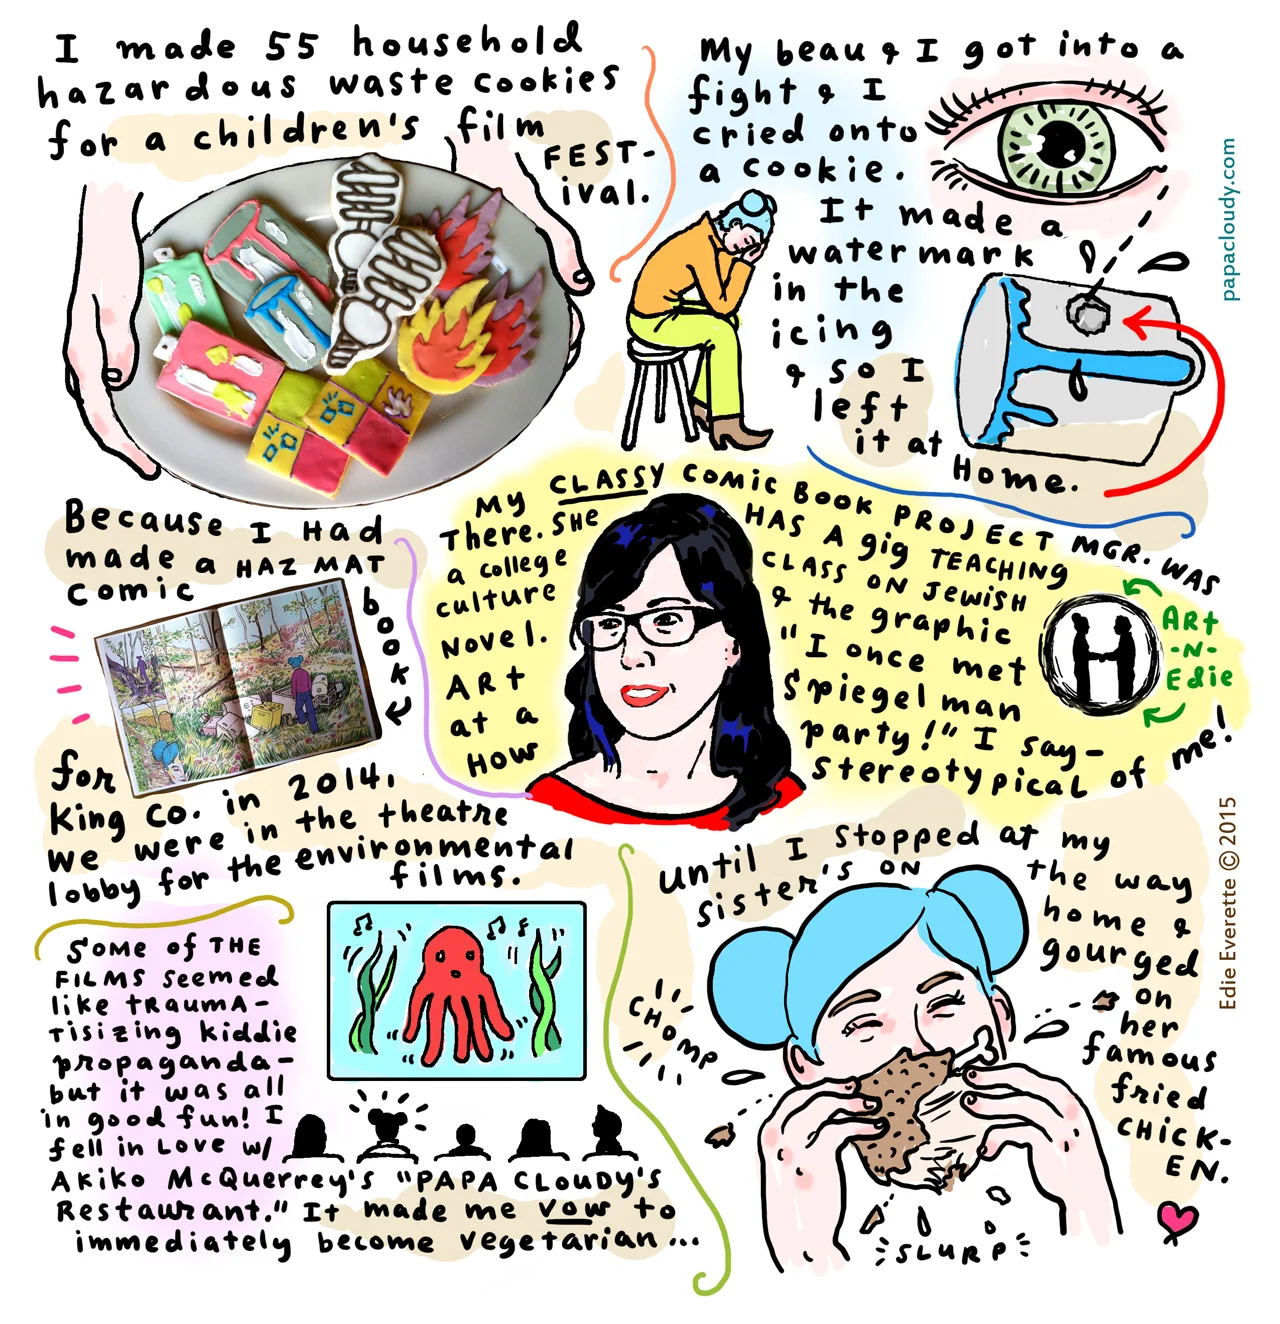 I made 55 household
hazardous waste cookies
for a children's film
FEST-
ival.
My beau & I got into a
fight & I
cried onto
a cookie.
It made a
watermark
in the
icing
& so I
left
it at
Home.
papacloudy.com
Because I Had
made a HAZ MAT
comic
book
for
King Co. in 2014,
we were in the theatre
lobby for the environmental
films.
My CLASSY COMIC BOOK PROJECT MGR. WAS
There. She HAS A gig TEACHING
a college CLASS ON JEWISH
culture & the graphic
Novel. "I once met
ARt Spiegelman
at a party!" I say-
How stereotypical of me!
H
ARt
-N-
Edie
Some of THE
FILMS seemed
like TRAUMA-
TISIZING kiddie
propaganda-
but it was all
in good fun! I
fell in LOVE w/
AKIKO McQuerrey's "PAPA CLOUDY'S
Restaurant." It made me vow to
immediately become vegetarian...
until I stopped at my
sister's on the way
home &
gourged
on
her
famous
fried
CHICK-
EN.
CHOMP
SLURP
Edie Everette © 2015